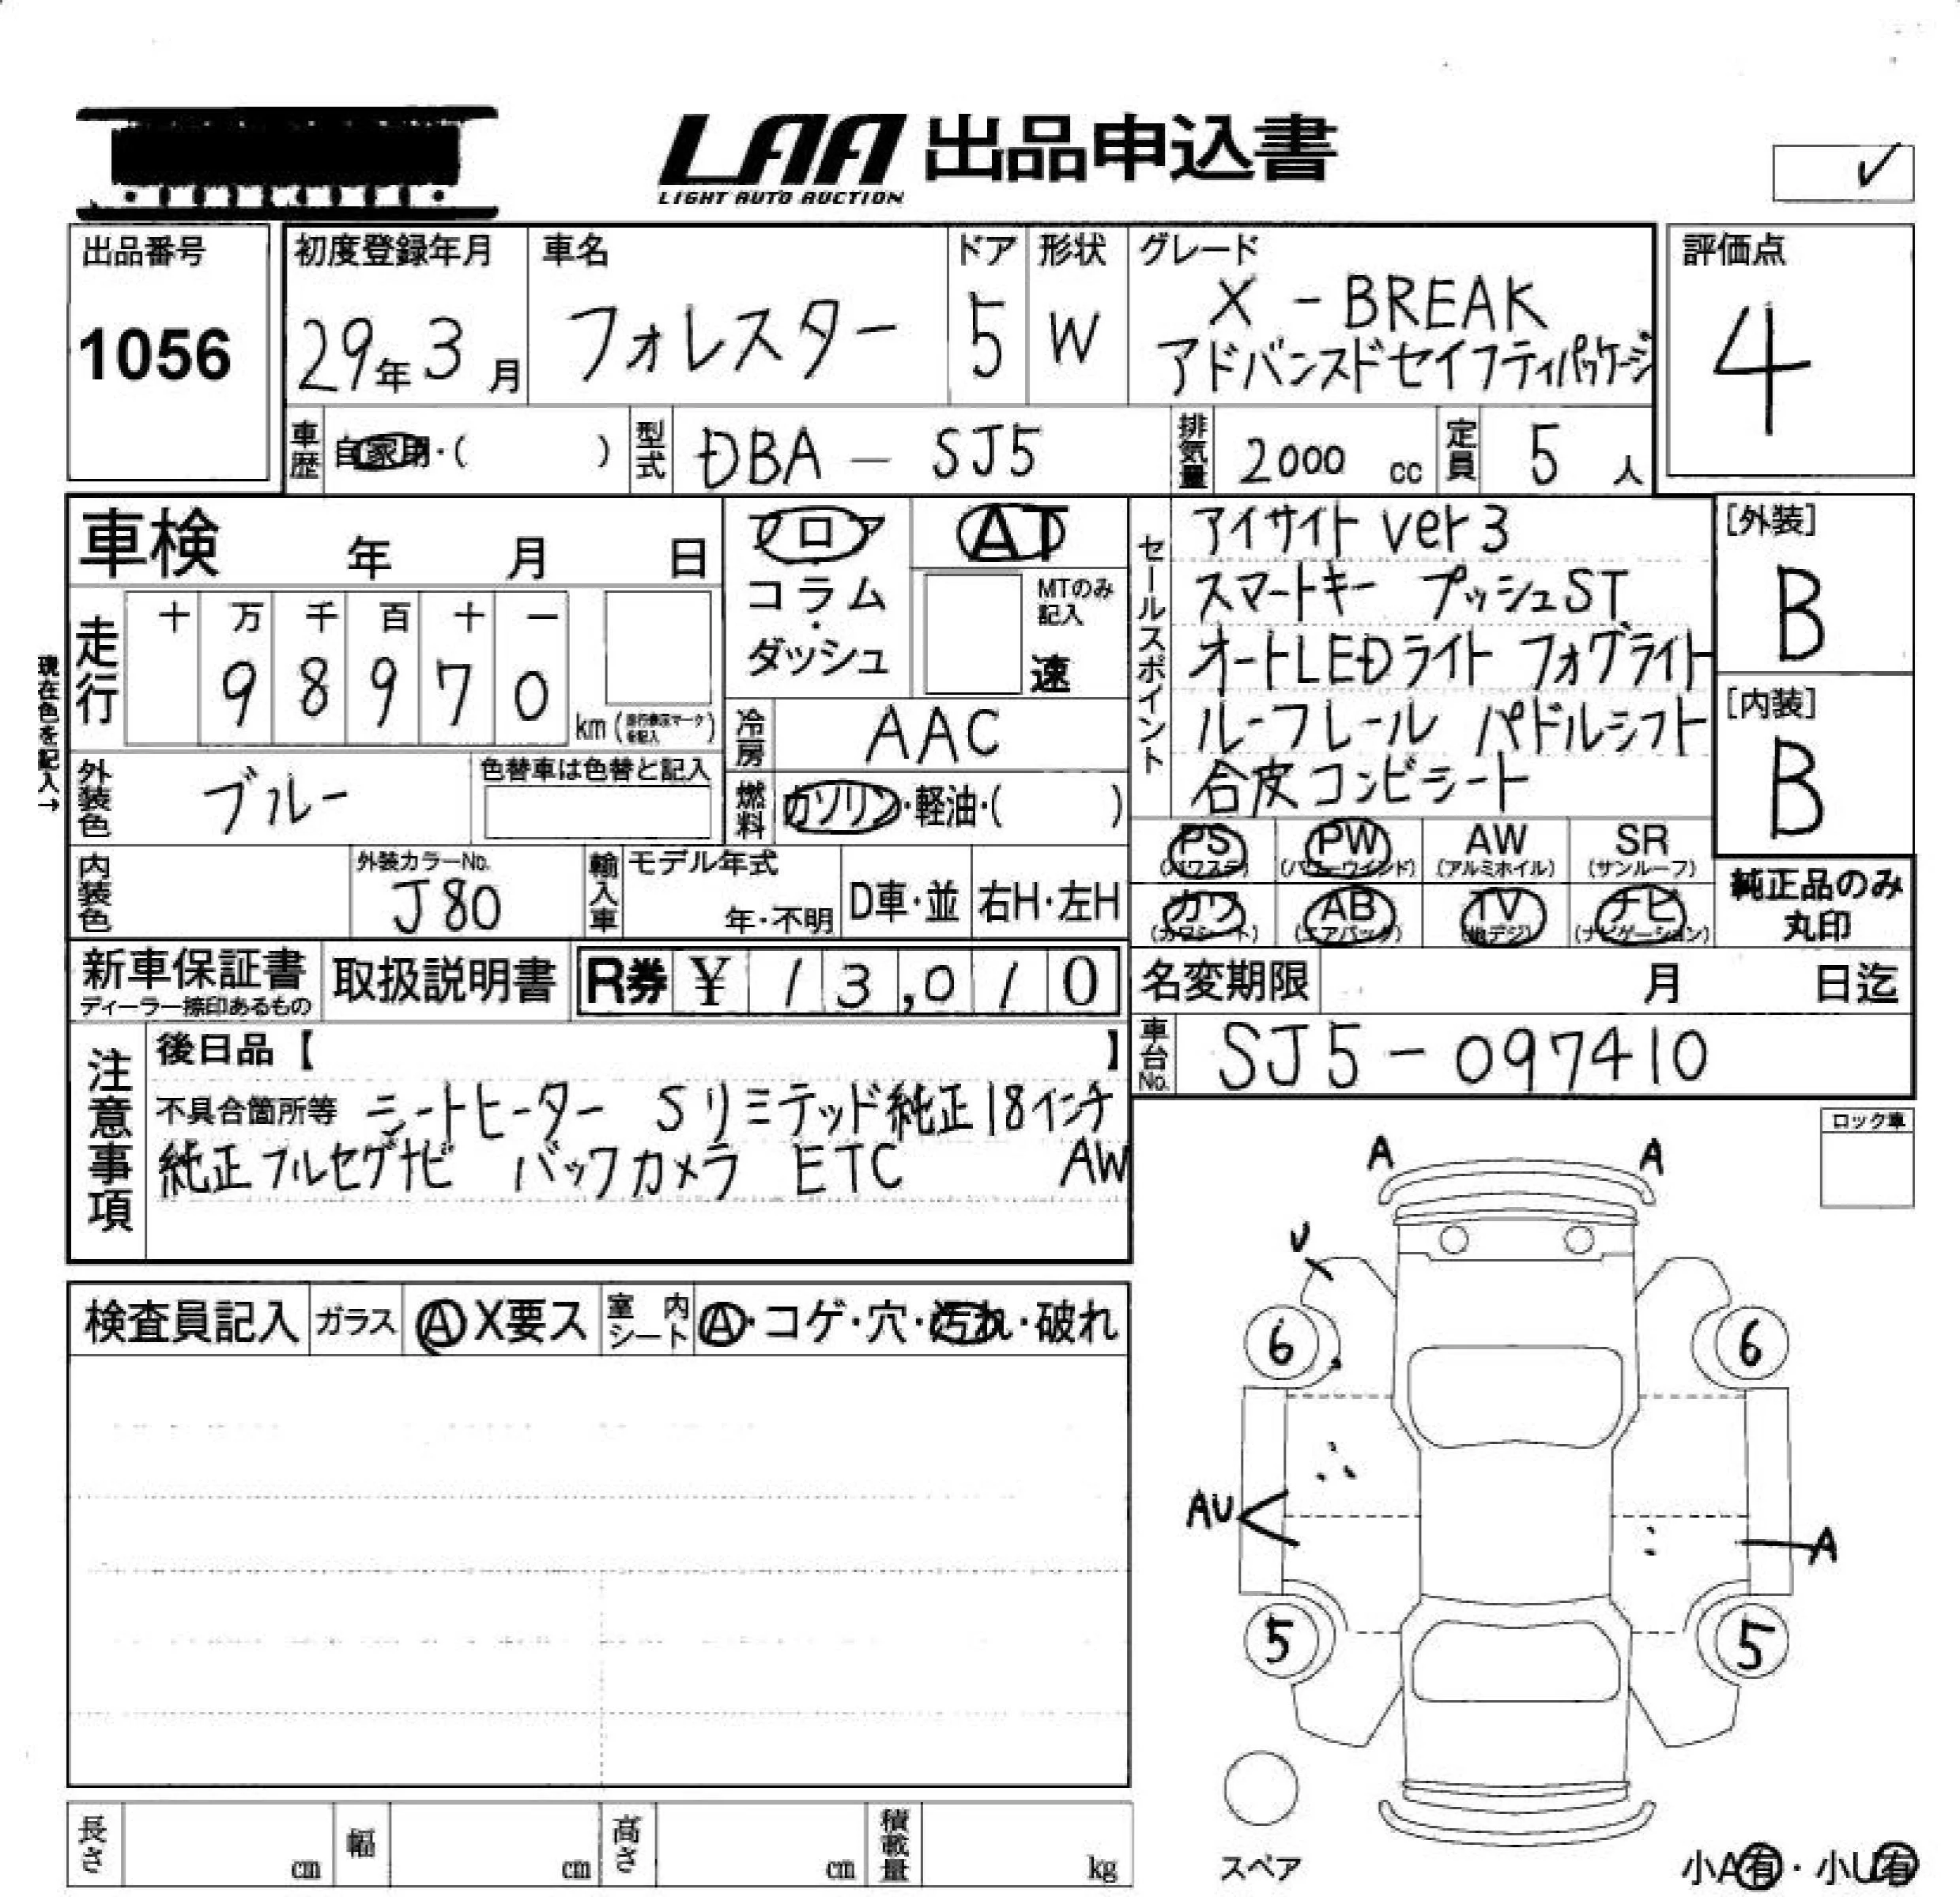 LAA 出品申込書
LIGHT AUTO AUCTION
✓
出品番号
1056
初度登録年月
29年 3月
車名
フォレスター
ドア
5
形状
W
グレード
X-BREAK
アドバンスドセイフティパッケージ
評価点
4
車歴
自家用・( )
型式
DBA - SJ5
排気量
2000 cc
定員
5 人
車検 年 月 日
フロア
コラム・ダッシュ
AT
MTのみ記入
速
セールスポイント
アイサイト ver3
スマートキー プッシュST
オートLEDライト フォグライト
ルーフレール パドルシフト
合皮コンビシート
[外装]
B
[内装]
B
現在色を記入→
走行
十 万 千 百 十 一
9 8 9 7 0
km
冷房
AAC
燃料
ガソリン・軽油・( )
外装色
ブルー
色替車は色替と記入
内装色
外装カラーNo.
J80
輸入車
モデル年式
年・不明
D車・並
右H・左H
PS
(パワステ)
PW
(パワーウインド)
AW
(アルミホイル)
SR
(サンルーフ)
カワ
(カワシート)
AB
(エアバック)
TV
(地デジ)
ナビ
(ナビゲーション)
純正品のみ
丸印
新車保証書
ディーラー捺印あるもの
取扱説明書
R券 ¥ 13,010
名変期限 月 日迄
車台No.
SJ5-097410
注意事項
後日品【 】
不具合箇所等 シートヒーター Sリミテッド純正18インチ
純正フルセグナビ バックカメラ ETC AW
ロック車
A
A
U
6
6
AU
A
5
5
検査員記入
ガラス
A X要ス
室内シート
A・コゲ・穴・汚れ・破れ
長さ cm
幅 cm
高さ cm
積載量 kg
スペア
小A有・小U有